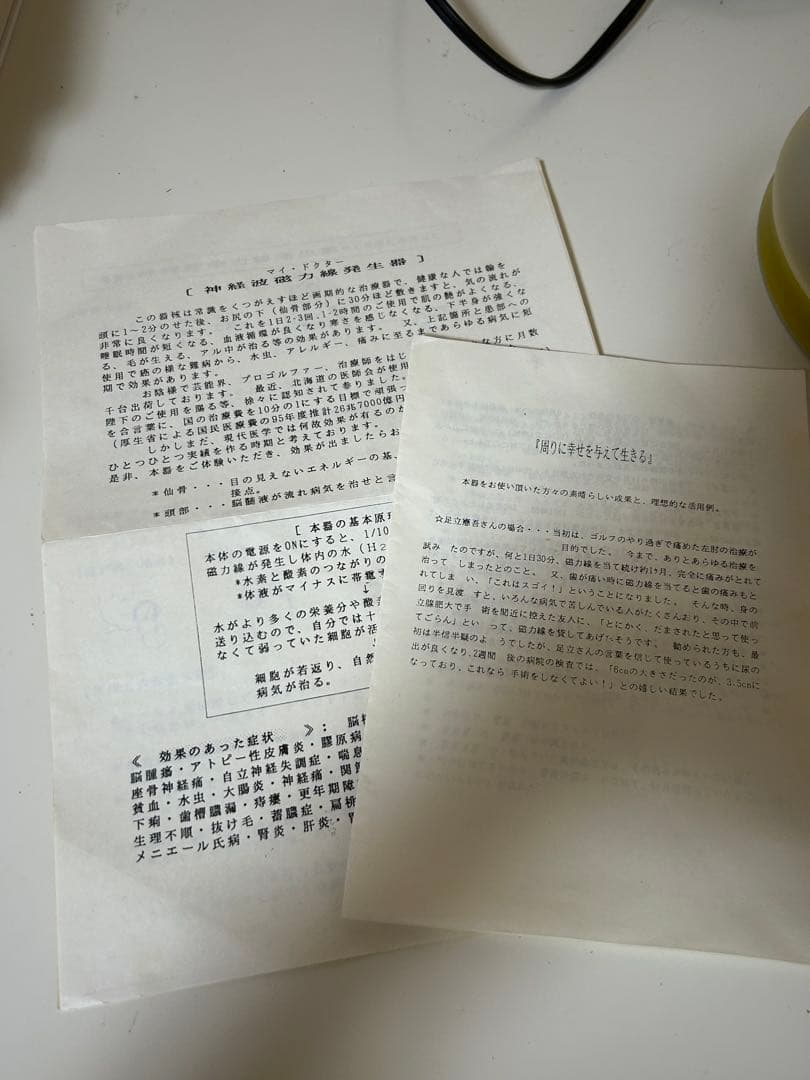 マイ・ドクター
〔 神経波磁力線発生器 〕
この器械は常識をくつがえすほど画期的な治療器で、健康な人では輪を
頭に1～2分のせた後、お尻の下(仙骨部分)に30分ほど敷きますと、気の流れが
非常に良くなります。 これを1日2・3回、1・2時間のご使用で肌の艶がよくなる、
睡眠時間が短くなる、血液循環が良くなり寒さを感じなくなる、下半身が強くな
る、毛が生える、アル中が治る等の効果があります。 又、上記箇所と患部への
使用で癌の様な難病から、水虫、アレルギー、痛みに至るまであらゆる病気に短
期で効果があります。
お陰様で芸能界、プロゴルファー、治療師をはじ
な方に月数
千台出荷しております。 最近、北海道の医師会が使用
陛下のご使用を賜る等、徐々に認知されて参りました。
を合言葉に、国の治療費を10分の1にする目標で頑張っ
(厚生省による国民医療費の95年度推計26兆7000億円
しかしまだ、現代医学では何故効果が有るのか
ひとつひとつ実績を作る時期と考えております。
是非、本器をご体験いただき、効果が出ましたらお
*仙骨・・・目の見えないエネルギーの基、
接点。
*頭部・・・脳髄液が流れ病気を治せと言
[ 本器の基本原理
本体の電源をONにすると、1/10
磁力線が発生し体内の水(H2
*水素と酸素のつながりの
*体液がマイナスに帯電す
↓
水がより多くの栄養分や酸素
送り込むので、自分では十
なくて弱っていた細胞が活
細胞が若返り、自然
病気が治る。
《 効果のあった症状 》: 脳
脳腫瘍・アトピー性皮膚炎・膠原病
座骨神経痛・自立神経失調症・喘息
貧血・水虫・大腸炎・神経痛・関節
下痢・歯槽膿漏・痔瘻・更年期障
生理不順・抜け毛・蓄膿症・扁桃
メニエール氏病・腎炎・肝炎・
『周りに幸せを与えて生きる』
本器をお使い頂いた方々の素晴らしい成果と、理想的な活用例。
☆足立憲吾さんの場合・・・当初は、ゴルフのやり過ぎで痛めた左肘の治療が
目的でした。 今まで、ありとあらゆる治療を
試み たのですが、何と1日30分、磁力線を当て続け約1ヶ月、完全に痛みがとれて
治って しまったとのこと。 又、歯が痛い時に磁力線を当てると歯の痛みもと
れてしま い、「これはスゴイ!」ということになりました。 そんな時、身の
回りを見渡 すと、いろんな病気で苦しんでいる人がたくさんおり、その中で前
立腺肥大で手 術を間近に控えた友人に、「とにかく、だまされたと思って使っ
てごらん」とい って、磁力線を貸してあげたそうです。 勧められた方も、最
初は半信半疑のよ うでしたが、足立さんの言葉を信じて使っているうちに尿の
出が良くなり、2週間 後の病院の検査では、「6cmの大きさだったのが、3.5cmに
なっており、これなら 手術をしなくてよい!」との嬉しい結果でした。